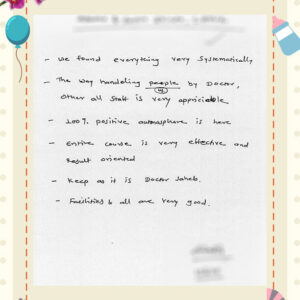 - we found everything very systematically
- The way handeling people by Doctor,
other all staff is very appriciable
- 100% positive autmosphere is here
- Entire course is very effective and
result oriented
- Keep as it is Doctor Saheb.
- Facilities & all are very good.